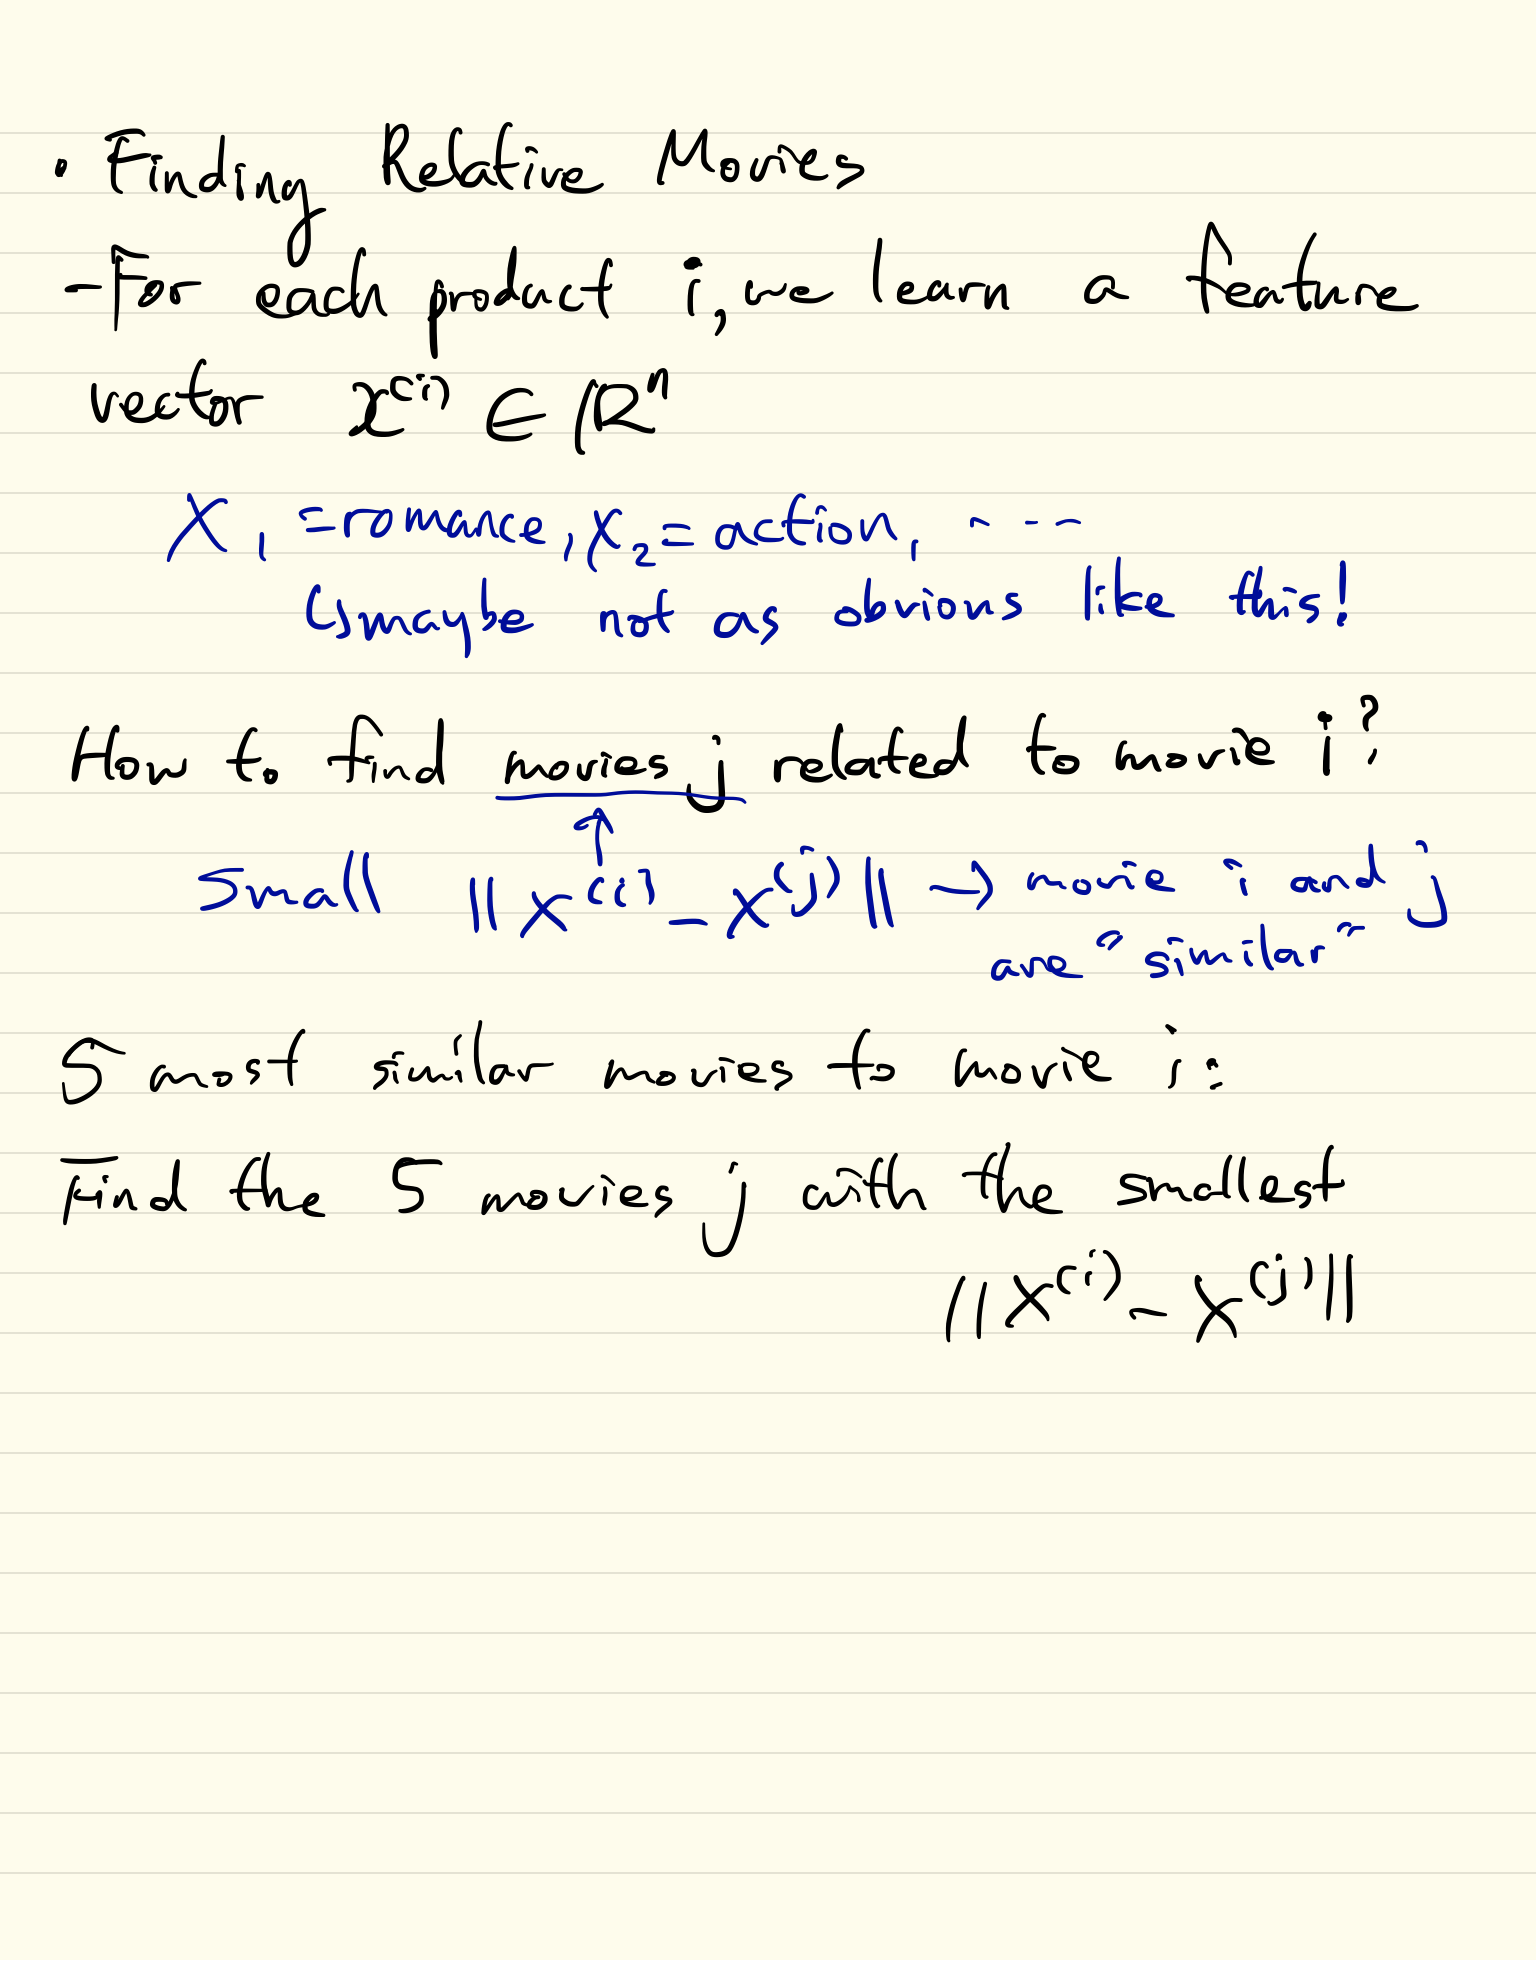 • Finding Relative Movies
- For each product i, we learn a feature
vector x⁽ⁱ⁾ ∈ ℝⁿ
X₁ = romance, X₂ = action, ....
↳ maybe not as obvious like this!
How to find movies j related to movie i?
↑
Small ||x⁽ⁱ⁾ - x⁽ʲ⁾|| → movie i and j
are "similar"
5 most similar movies to movie i:
Find the 5 movies j with the smallest
||x⁽ⁱ⁾ - x⁽ʲ⁾||